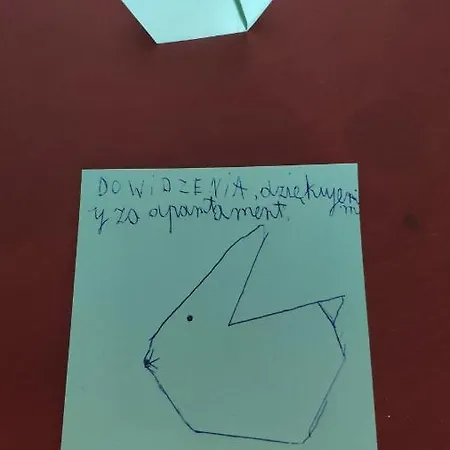 DOWIDZENIA, dziękujem
y za apartament.